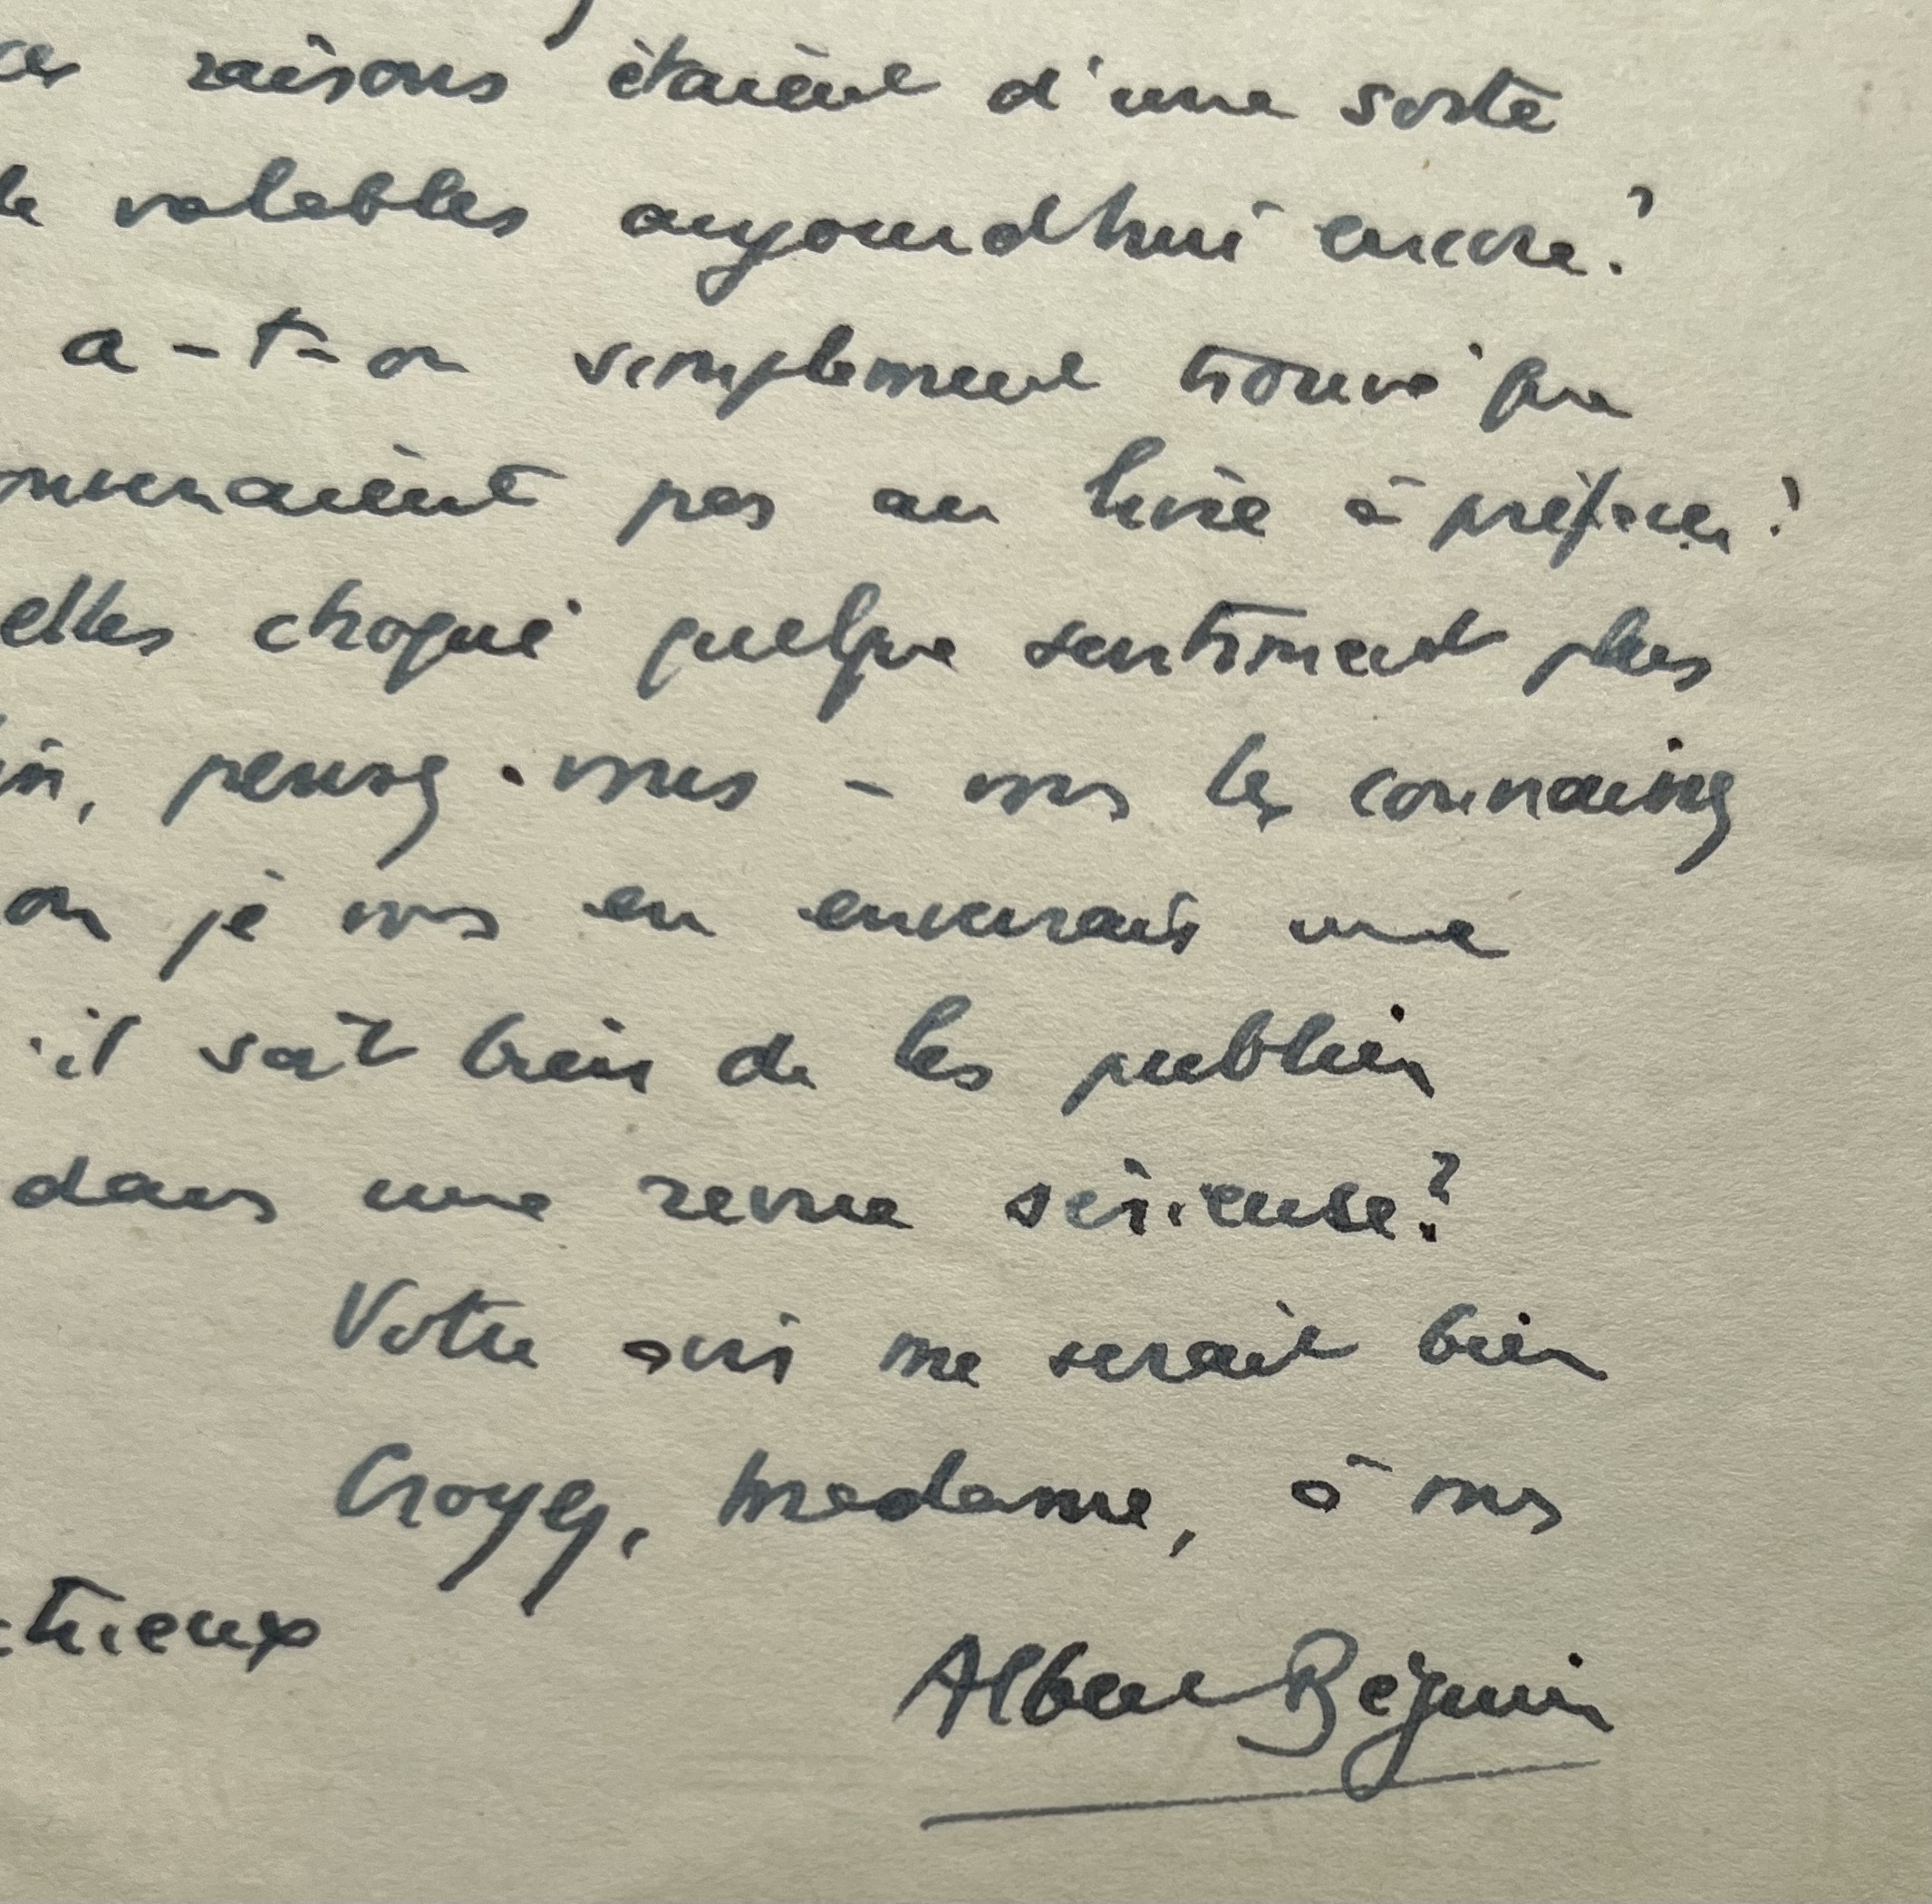 ces raisons étaient d'une sorte
valables aujourd'hui encore?
a-t-on simplement trouvé que
pas au livre à préfacer?
elles choqué quelque sentiment plus
pensez-vous - vous les connaissez
je vous en enverrais une
il soit bien de les publier
dans une revue sérieuse?
Votre avis me serait bien
Croyez, Madame, à mes
Albert Béguin